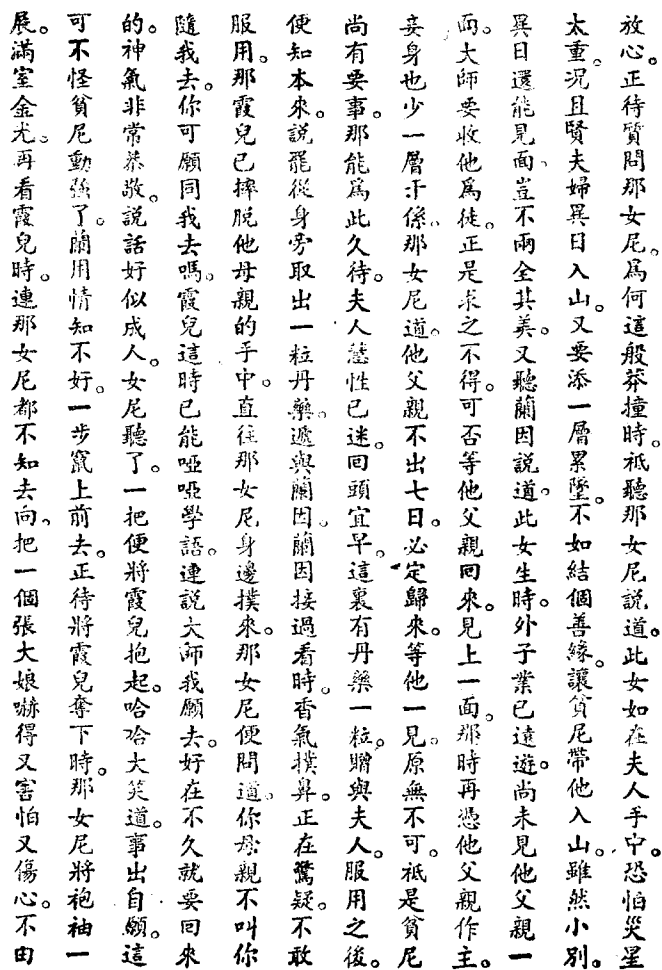 放心。正待質問那女尼。爲何這般莽撞時。祇聽那女尼說道。此女如在夫人手中。恐怕災星
太重。况且賢夫婦異日入山。又要添一層累墜。不如結個善緣。讓貧尼帶他入山。雖然小別。
異日還能見面。豈不兩全其美。又聽蘭因說道。此女生時。外子業已遠遊。尚未見他父親一
面。大師要收他爲徒。正是求之不得。可否等他父親囘來。見上一面。那時再憑他父親作主。
妾身也少一層干係。那女尼道。他父親不出七日。必定歸來。等他一見。原無不可。祇是貧尼
尚有要事。那能爲此久待。夫人靈性已迷。囘頭宜早。這裏有丹藥一粒。贈與夫人。服用之後。
便知本來。說罷從身旁取出一粒丹藥。遞與蘭因。蘭因接過看時。香氣撲鼻。正在驚疑。不敢
服用。那霞兒已摔脫他母親的手中。直往那女尼身邊撲來。那女尼便問道。你母親不叫你
隨我去。你可願同我去嗎。霞兒這時已能啞啞學語。連說大師我願去。好在不久就要回來
的。神氣非常恭敬。說話好似成人。女尼聽了。一把便將霞兒抱起。哈哈大笑道。事出自願。這
可不怪貧尼動強了。蘭因情知不好。一步竄上前去。正待將霞兒奪下時。那女尼將袍袖一
展。滿室金光。再看霞兒時。連那女尼都不知去向。把一個張大娘嚇得又害怕又傷心。不由